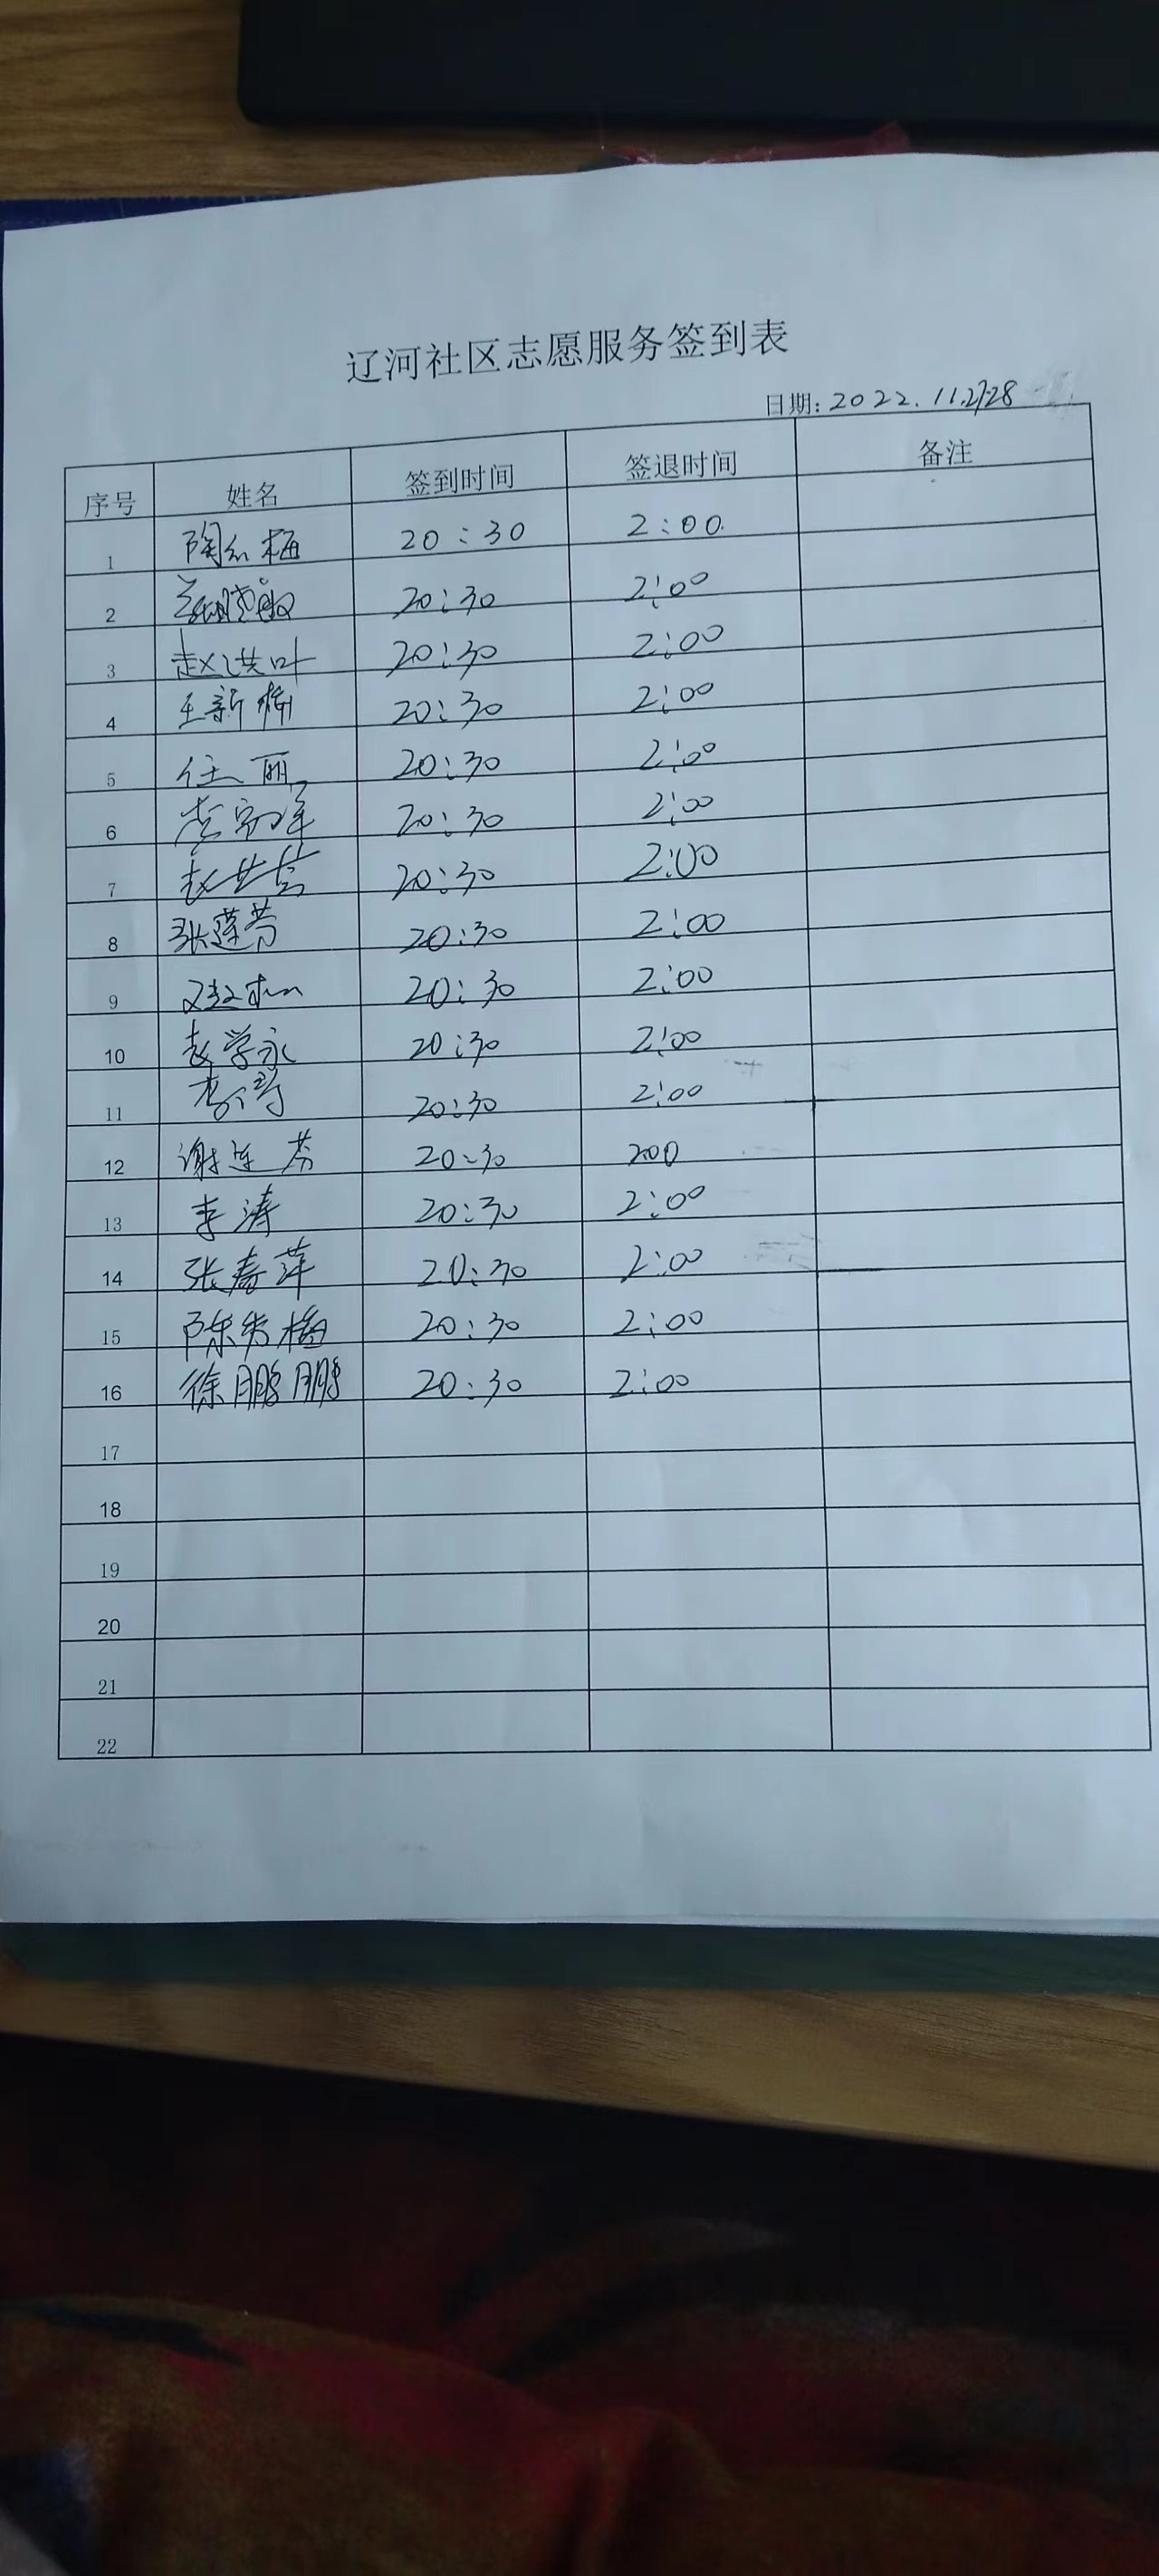 辽河社区志愿服务签到表
日期: 2022.11.27-28
序号 姓名 签到时间 签退时间 备注
1 陶红梅 20:30 2:00
2 20:30 2:00
3 赵洪叶 20:30 2:00
4 王新 20:30 2:00
5 任丽 20:30 2:00
6 李 20:30 2:00
7 赵 20:30 2:00
8 张莲芳 20:30 2:00
9 20:30 2:00
10 赵学永 20:30 2:00
11 李 20:30 2:00
12 谢连芬 20:30 200
13 李涛 20:30 2:00
14 张春萍 20:30 2:00
15 陈秀梅 20:30 2:00
16 徐鹏鹏 20:30 2:00
17
18
19
20
21
22